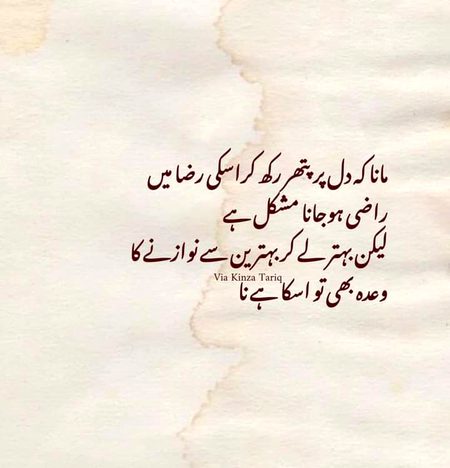 مانا کہ دل پر پتھر رکھ کر اسکی رضا میں
راضی ہو جانا مشکل ہے
لیکن بہتر لے کر بہترین سے نوازنے کا
Via Kinza Tariq
وعدہ بھی تو اسکا ہے نا